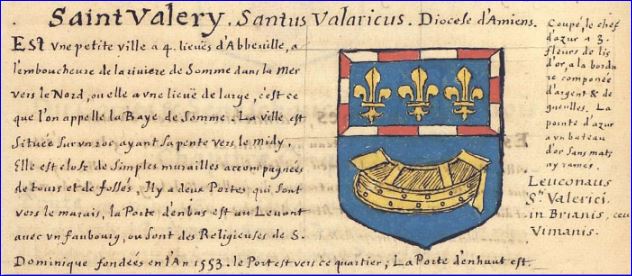 Saint Valery. Santus Valaricus. Diocese d'Amiens.
Est vne petite ville a 4. lieuës d'Abbeville, a
l'emboucheure de la riviere de Somme dans la Mer
vers le Nord, ou elle a vne lieuë de large, c'est ce
que l'on appelle la Baye de Somme. La ville est
située sur vn roc, ayant sa pente vers le midy.
Elle est close de simples murailles accompagnées
de tours et de fossés, Il y a deux Portes qui sont
vers le marais, la Porte d'enbas est au Levant
avec vn faubourg, ou sont des Religieuses de S.
Dominique fondées en l'An 1553. le Port est vers ce quartier; La Porte d'enhaut est
Coupé, le chef
d'azur a 3.
fleurs de lis
d'or, a la bordu
re componée
d'argent & de
gueulles. La
pointe d'azur
a vn bateau
d'or sans mats
ny rames.
Leuconaus
Sn. Valerici
in Brianis, ceu
Vimanis.